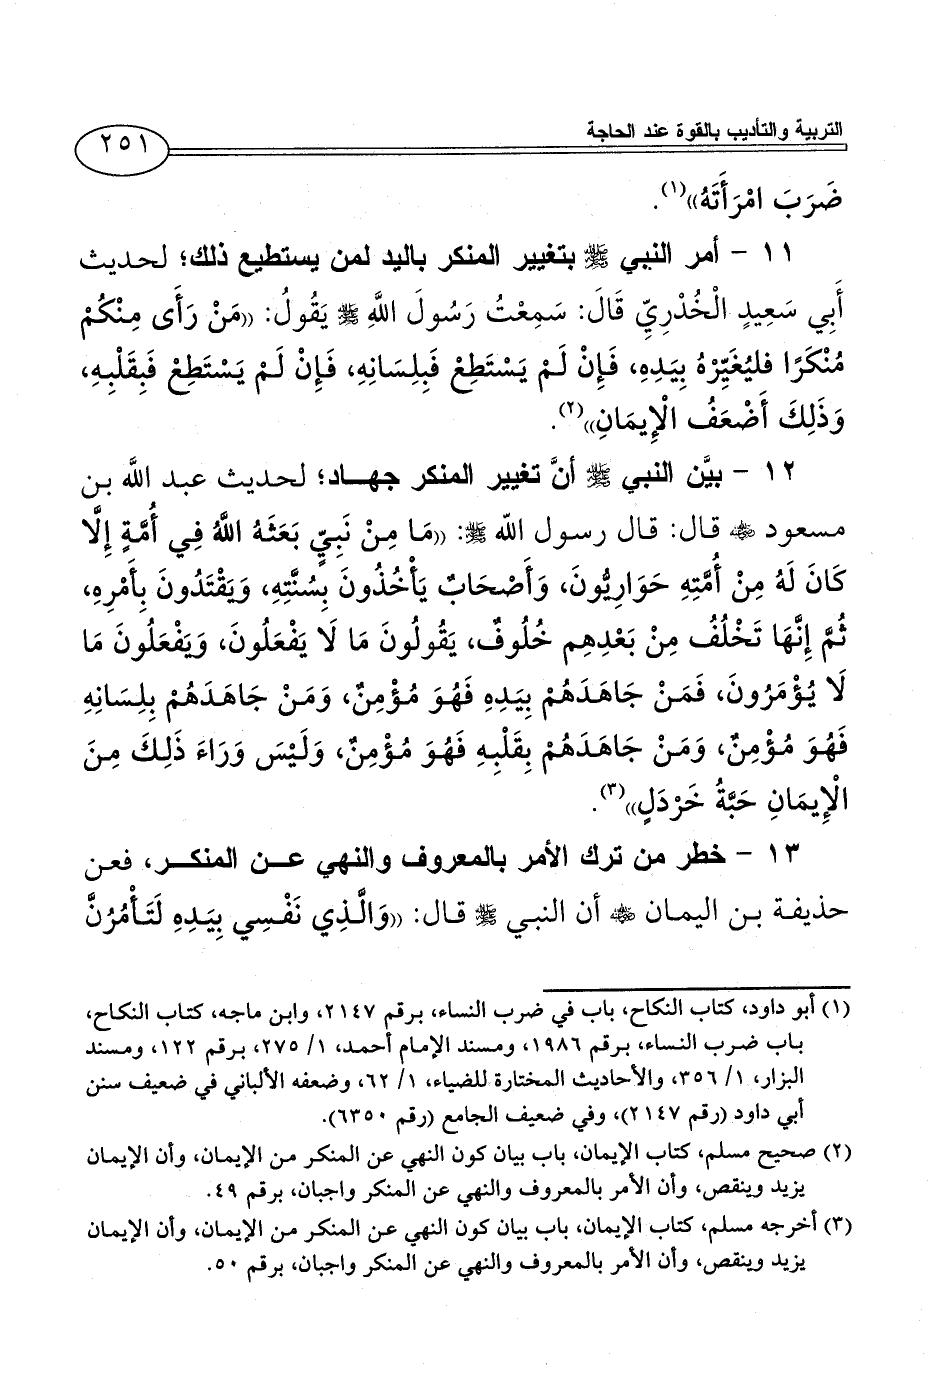 التربية والتأديب بالقوة عند الحاجة
٢٥١
ضَرَبَ امْرَأَتَهُ»(١).
١١ - أمر النبي ﷺ بتغيير المنكر باليد لمن يستطيع ذلك؛ لحديث
أَبِي سَعِيدٍ الْخُدْرِيِّ قَالَ: سَمِعْتُ رَسُولَ اللَّهِ ﷺ يَقُولُ: «مَنْ رَأَى مِنْكُمْ
مُنْكَرًا فليُغَيِّرْهُ بِيَدِهِ، فَإِنْ لَمْ يَسْتَطِعْ فَبِلِسَانِهِ، فَإِنْ لَمْ يَسْتَطِعْ فَبِقَلْبِهِ،
وَذَلِكَ أَضْعَفُ الْإِيمَانِ»(٢).
١٢ - بيَّن النبي ﷺ أنَّ تغيير المنكر جهاد؛ لحديث عبد اللَّه بن
مسعود ﵁ قال: قال رسول اللَّه ﷺ: «مَا مِنْ نَبِيٍّ بَعَثَهُ اللَّهُ فِي أُمَّةٍ إِلَّا
كَانَ لَهُ مِنْ أُمَّتِهِ حَوَارِيُّونَ، وَأَصْحَابٌ يَأْخُذُونَ بِسُنَّتِهِ، وَيَقْتَدُونَ بِأَمْرِهِ،
ثُمَّ إِنَّهَا تَخْلُفُ مِنْ بَعْدِهِم خُلُوفٌ، يَقُولُونَ مَا لَا يَفْعَلُونَ، وَيَفْعَلُونَ مَا
لَا يُؤْمَرُونَ، فَمَنْ جَاهَدَهُمْ بِيَدِهِ فَهُوَ مُؤْمِنٌ، وَمَنْ جَاهَدَهُمْ بِلِسَانِهِ
فَهُوَ مُؤْمِنٌ، وَمَنْ جَاهَدَهُمْ بِقَلْبِهِ فَهُوَ مُؤْمِنٌ، وَلَيْسَ وَرَاءَ ذَلِكَ مِنَ
الْإِيمَانِ حَبَّةُ خَرْدَلٍ»(٣).
١٣ - خطر من ترك الأمر بالمعروف والنهي عن المنكر، فعن
حذيفة بن اليمان ﵁ أن النبي ﷺ قال: «وَالَّذِي نَفْسِي بِيَدِهِ لَتَأْمُرُنَّ
(١) أبو داود، كتاب النكاح، باب في ضرب النساء، برقم ٢١٤٧، وابن ماجه، كتاب النكاح،
باب ضرب النساء، برقم ١٩٨٦، ومسند الإمام أحمد، ١/ ٢٧٥، برقم ١٢٢، ومسند
البزار، ١/ ٣٥٦، والأحاديث المختارة للضياء، ١/ ٦٢، وضعفه الألباني في ضعيف سنن
أبي داود (رقم ٢١٤٧)، وفي ضعيف الجامع (رقم ٦٣٥٠).
(٢) صحيح مسلم، كتاب الإيمان، باب بيان كون النهي عن المنكر من الإيمان، وأن الإيمان
يزيد وينقص، وأن الأمر بالمعروف والنهي عن المنكر واجبان، برقم ٤٩.
(٣) أخرجه مسلم، كتاب الإيمان، باب بيان كون النهي عن المنكر من الإيمان، وأن الإيمان
يزيد وينقص، وأن الأمر بالمعروف والنهي عن المنكر واجبان، برقم ٥٠.